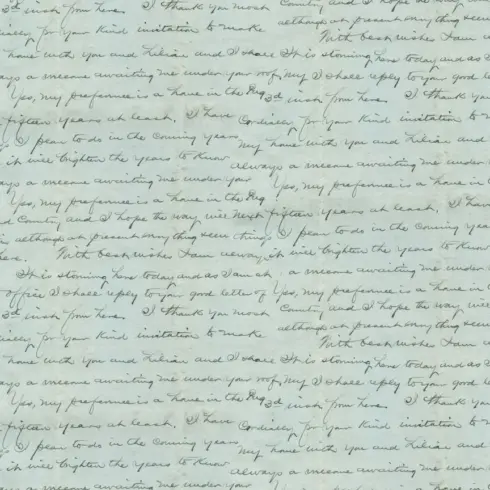 3d inst from here. I thank you most County, and I hope the way
although at present everything seems
cordially for your kind invitation to make With best wishes I am
home with you and Lilian and I shall It is storming here today and as I
always a welcome awaiting me under your roof, my I shall reply to your good letter
Yes, my preference is a home in the 3d inst from here. I thank you
fifteen years at least. I have Cordially for your kind invitation to
I plan to do in the coming years my home with you and Lilian and
it will brighten the years to know always a welcome awaiting me under
always a welcome awaiting me under your Yes, my preference is a home in
Yes, my preference is a home in the
County and I hope the way will next fifteen years at least. I have
although at present everything seems things I plan to do in the coming years
here. With best wishes I am always it will brighten the years to know
It is storming here today and as I am at a welcome awaiting me under
office I shall reply to your good letter of Yes, my preference is a home in
3d inst from here. I thank you most County, and I hope the way will
cordially for your kind invitation to make although at present everything seems
With best wishes I am
home with you and Lilian and I shall It is storming here today and as
always a welcome awaiting me under your roof, my I shall reply to your good
Yes, my preference is a home in the 3d inst from here. I thank you
fifteen years at least. I have Cordially for your kind invitation to
I plan to do in the coming years my home with you and Lilian and
it will brighten the years to know always a welcome awaiting me under
always a welcome awaiting me under your Yes, my preference is a home in